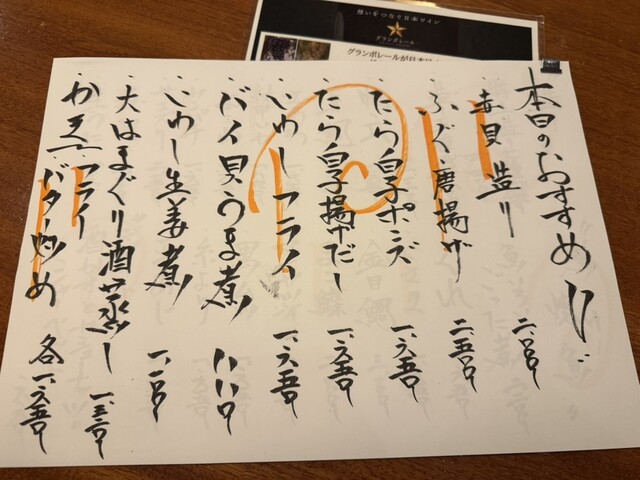 想いをつなぐ日本ワイン
グランポレール
グランポレールが日本
本日のおすすめ
・赤貝造り 二、〇〇〇
・ふぐ唐揚げ 二、五〇〇
・たら白子ポンズ 一、六五〇
・たら白子揚げだし 一、六五〇
・いわしフライ 一、六五〇
・バイ貝うま煮 八八〇
・いわし生姜煮 一、一〇〇
・大はまぐり酒蒸し
・かきフライ
バター炒め 各一、六五〇